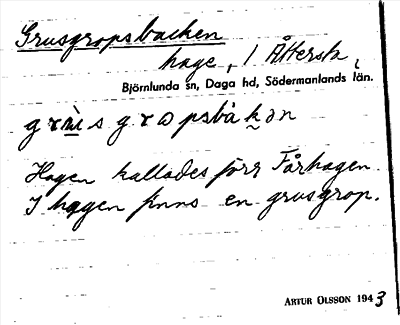 Grusgropsbacken
hage, 1 Åttersta,
Björnlunda sn, Daga hd, Södermanlands län.
grùs grɷpsbàkən
Hagen kallades förr Fårhagen.
I hagen finns en grusgrop.
ARTUR OLSSON 1943